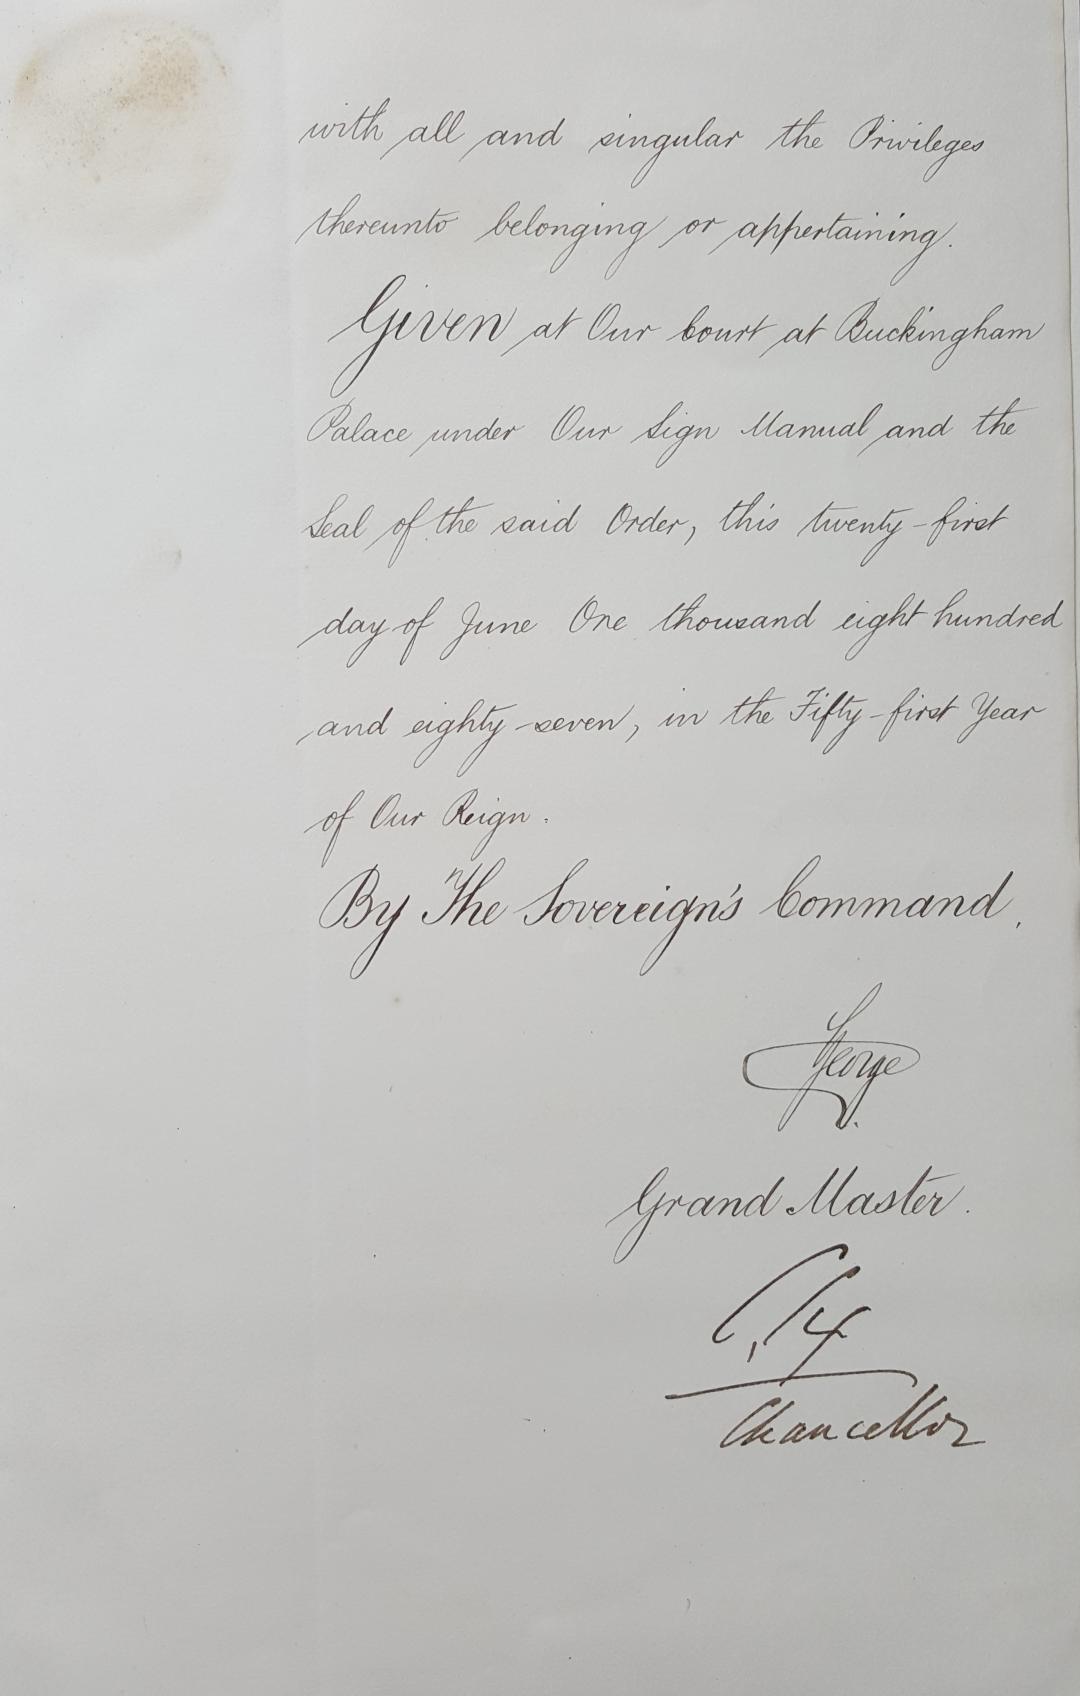 with all and singular the Privileges
thereunto belonging or appertaining.
Given at Our Court at Buckingham
Palace under Our Sign Manual and the
Seal of the said Order, this twenty-first
day of June One thousand eight hundred
and eighty-seven, in the Fifty-first Year
of Our Reign.
By The Sovereign's Command.
George
Grand Master.
Chancellor